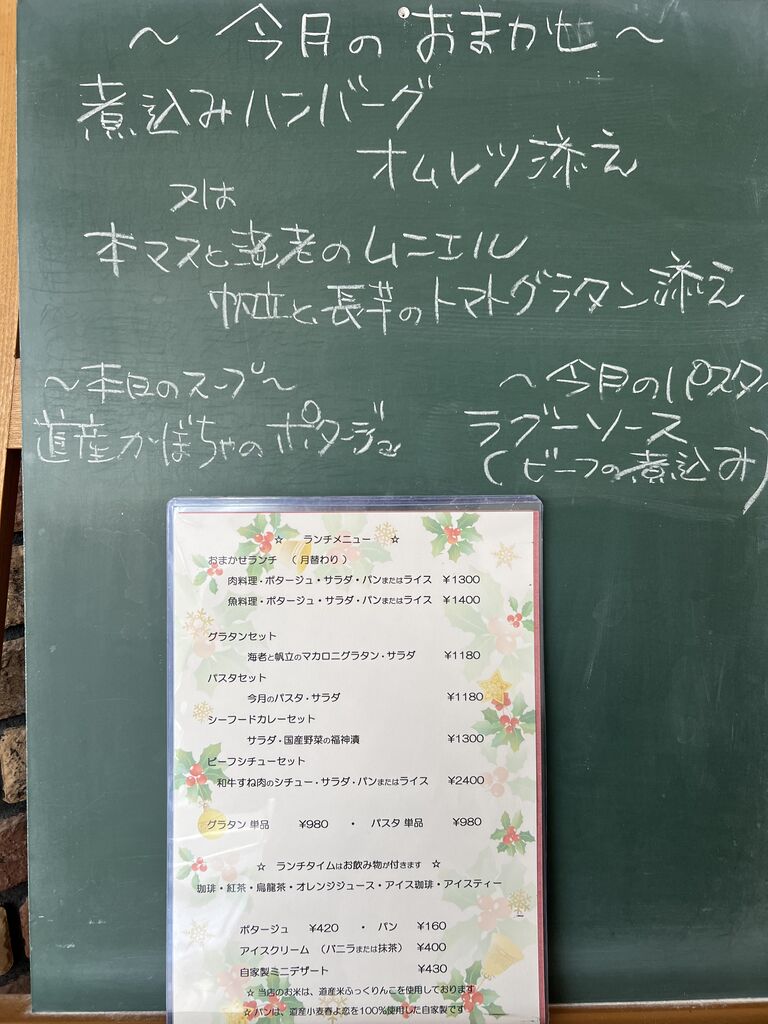 ～今月のおまかせ～
煮込みハンバーグ
オムレツ添え
又は
本マスと海老のムニエル
帆立と長芋のトマトグラタン添え
～本日のスープ～
道産かぼちゃのポタージュ
～今月のパスタ～
ラグーソース
(ビーフの煮込み)
☆ ランチメニュー ☆
おまかせランチ （月替わり）
肉料理・ポタージュ・サラダ・パンまたはライス ¥1300
魚料理・ポタージュ・サラダ・パンまたはライス ¥1400
グラタンセット
海老と帆立のマカロニグラタン・サラダ ¥1180
パスタセット
今月のパスタ・サラダ ¥1180
シーフードカレーセット
サラダ・国産野菜の福神漬 ¥1300
ビーフシチューセット
和牛すね肉のシチュー・サラダ・パンまたはライス ¥2400
グラタン 単品 ¥980 ・ パスタ 単品 ¥980
☆ ランチタイムはお飲み物が付きます ☆
珈琲・紅茶・烏龍茶・オレンジジュース・アイス珈琲・アイスティー
ポタージュ ¥420 ・ パン ¥160
アイスクリーム （バニラまたは抹茶） ¥400
自家製ミニデザート ¥430
☆ 当店のお米は、道産米ふっくりんこを使用しております
☆ パンは、道産小麦春よ恋を100%使用した自家製です